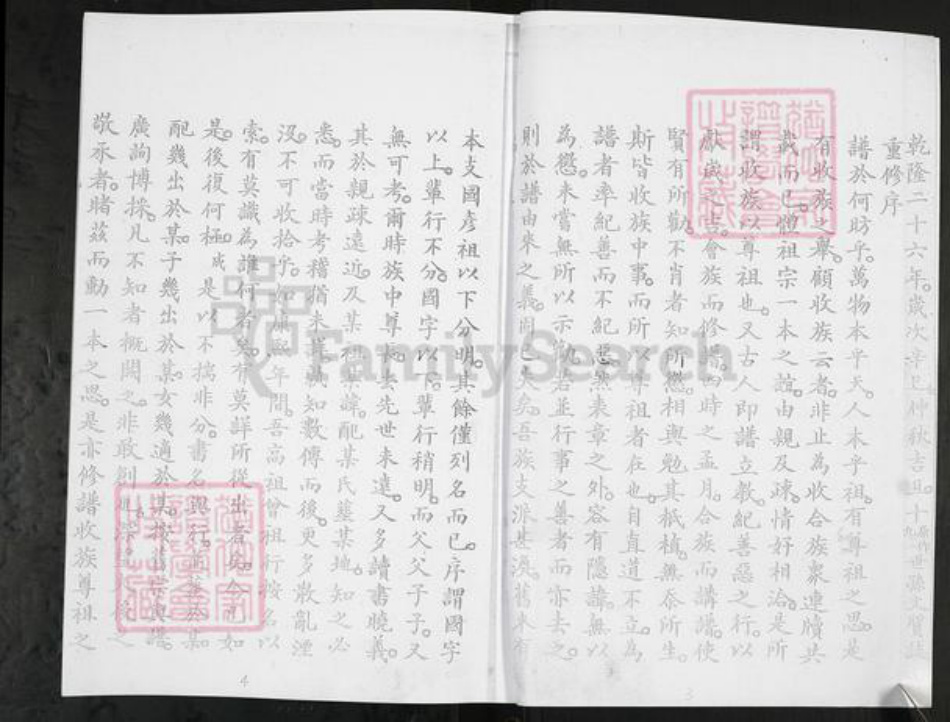 乾隆二十六年。歲次辛巳仲秋吉旦十九世孫文賢誌
重修序
譜於何昉乎。萬物本乎天。人本乎祖。有尊祖之思。是
有收族之舉。顧收族云者。非止為收合族眾連牘共
載而已。體祖宗一本之誼。由親及疎。情好相洽。是所
謂收族以尊祖也。又古人即譜立教。紀善惡之行。以
獻歲之吉。會族而修譜。四時之孟月。合族而講譜。使
賢有所勸。不肖者知所懲。相與勉其祗植。無忝所生。
斯皆收族中事。而所以尊祖者在也。自直道不立。為
譜者率紀善而不紀惡。然表章之外。容有隱諱。無以
為懲。未嘗無所以示勸。若並行事之善者而亦去之。
則於譜由來之義。固已失矣。吾族支派甚漶。舊來有
本支國彥祖以下分明。其餘僅列名而已。序謂國字
以上。輩行不分。國字以下。輩行稍明。而父父子子。又
無可考。爾時族中尊長。去先世未遠。又多讀書曉義。
其於親疎遠近。及某祖某諱。配某氏。塟某地。知之必
悉。而當時考稽猶未詳。
沒。不可收拾乎。知康熙年間。吾高祖曾祖行。按名以
索。有莫識為誰何者矣。有莫詳所從出者矣。今
是。後復何極。是以不揣非分。書名與行。
配幾出於某。子幾出於某。女幾適於某。
廣詢博採。凡不知者概闕之。非敢創
敬承者。睹茲而動一本之思。是亦修譜收族尊祖之
4
3
FamilySearch